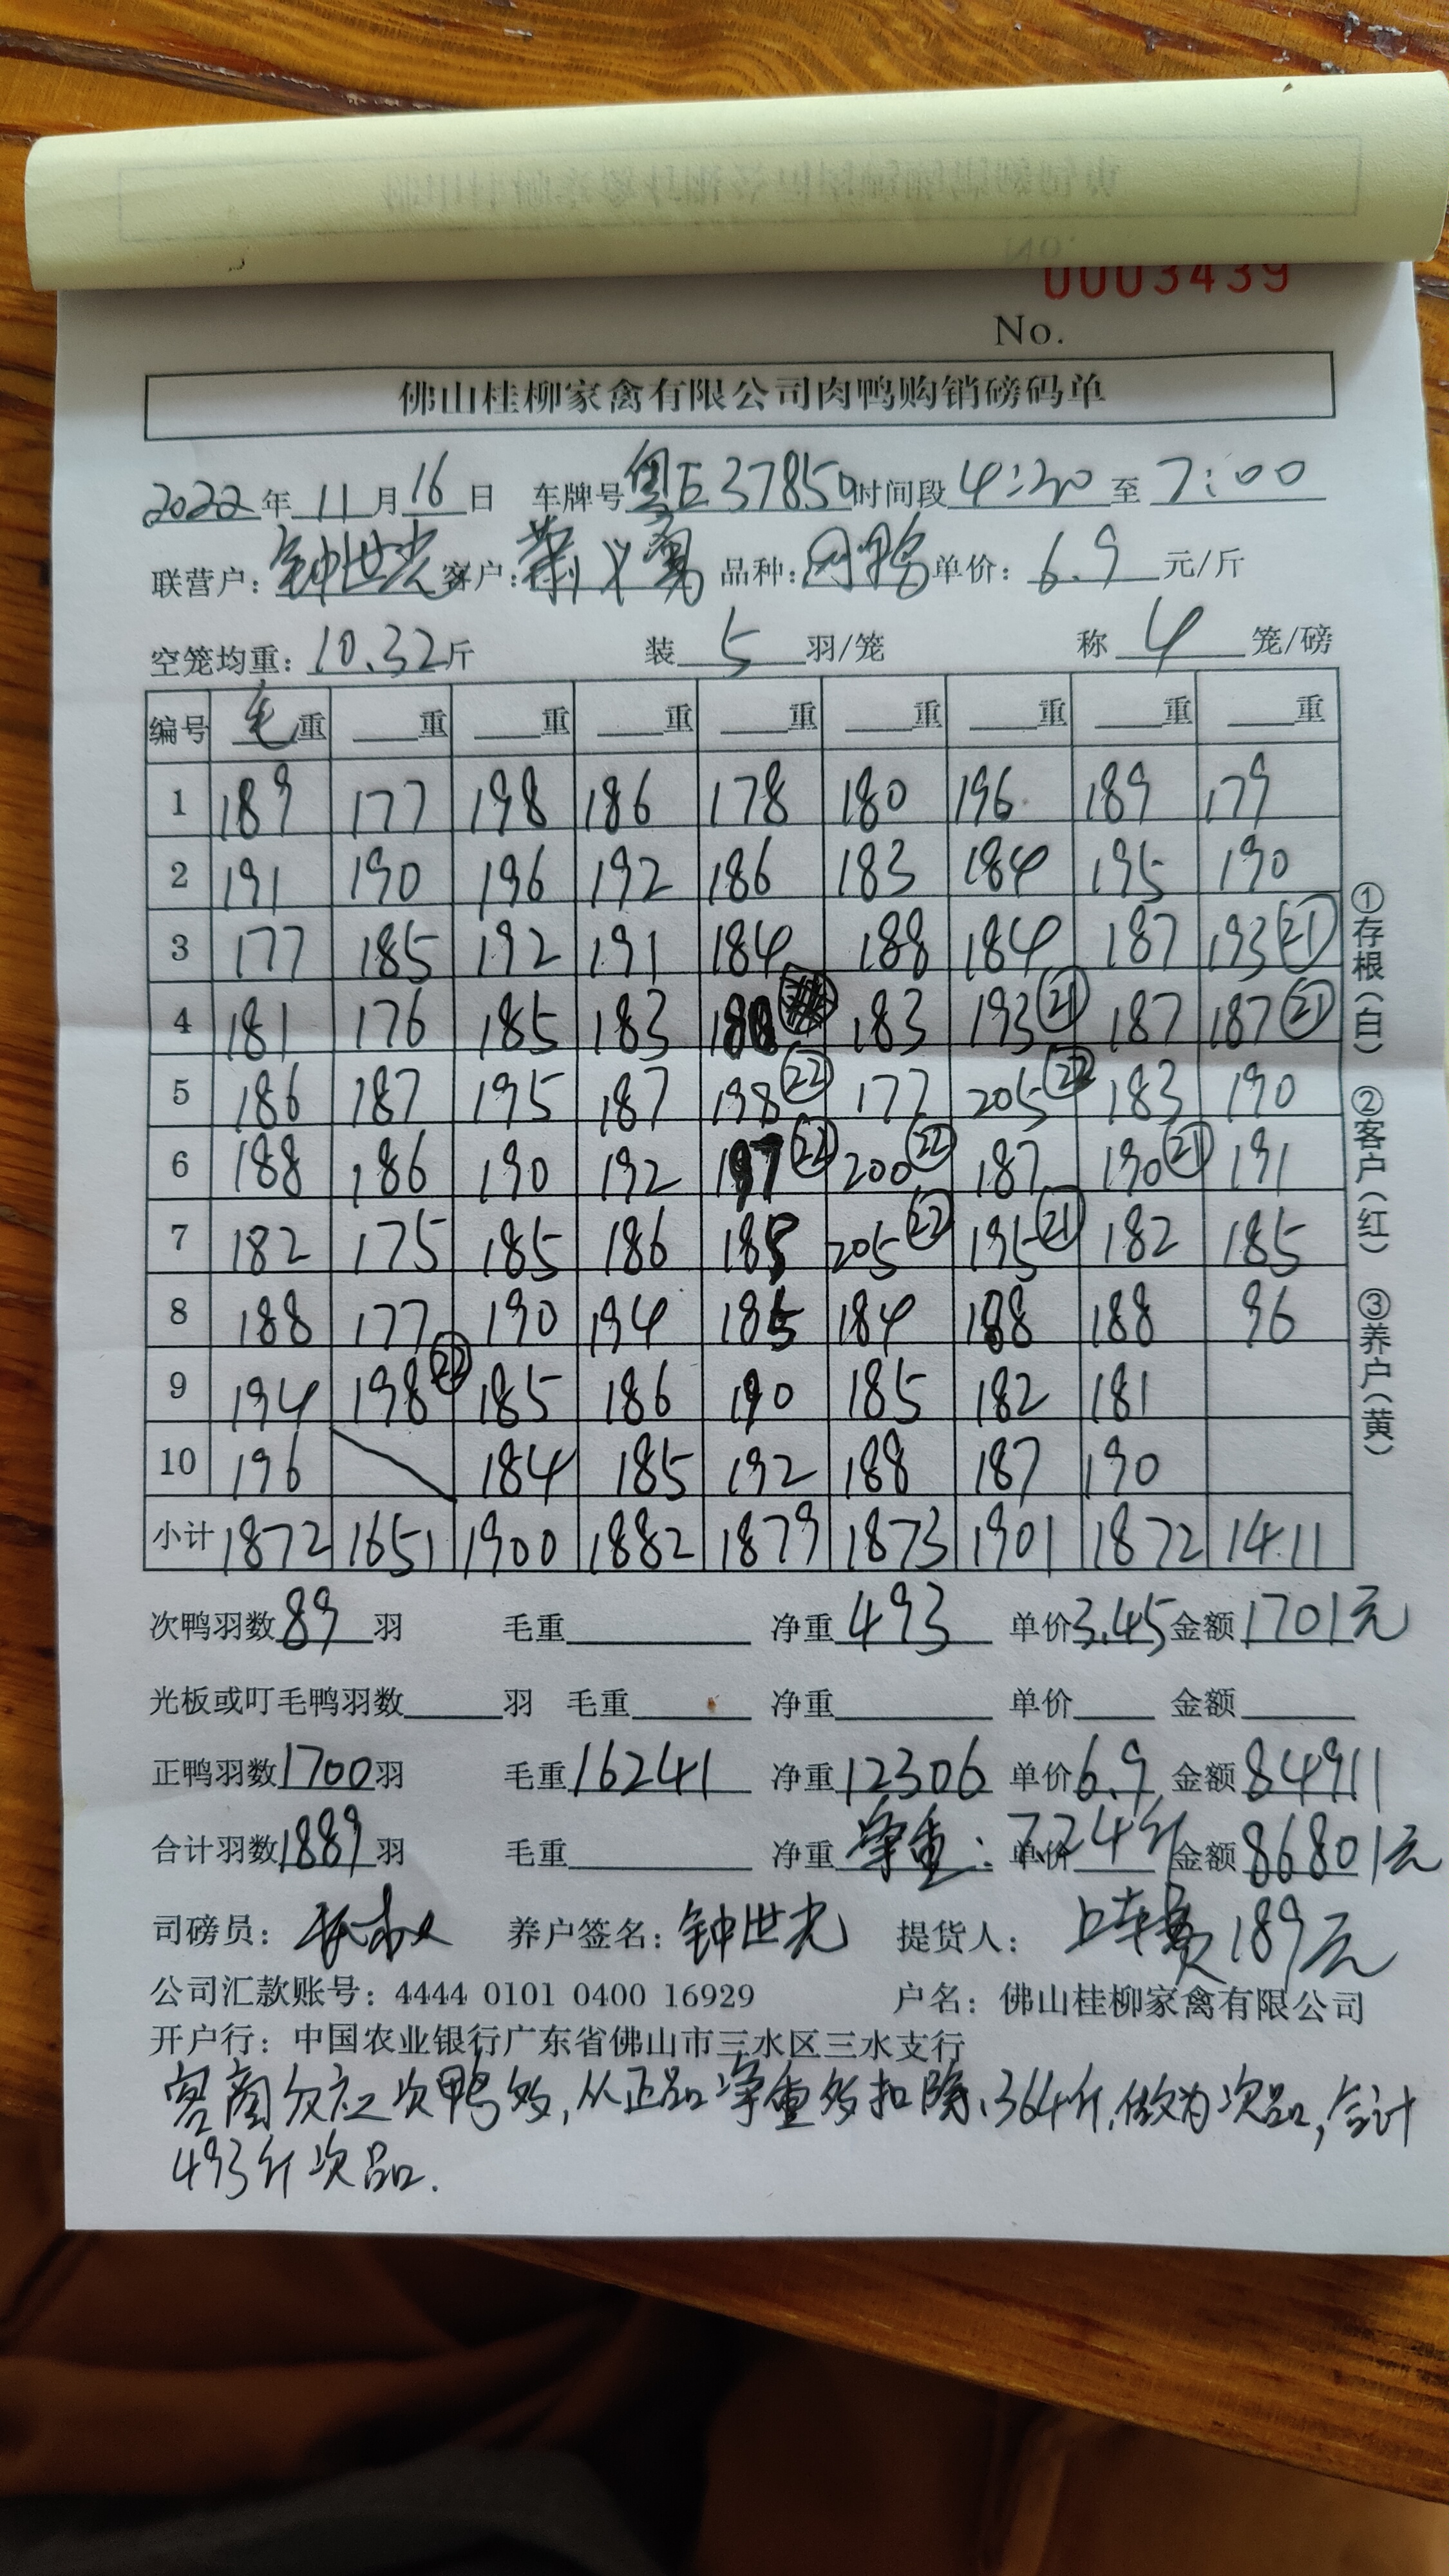 0003439
No.
佛山桂柳家禽有限公司肉鸭购销磅码单
2022年11月16日 车牌号粤E37850时间段4:20至7:00
联营户:钟世光 客户: 品种: 单价:6.9元/斤
空笼均重:10.32斤 装5羽/笼 称4笼/磅
编号 毛重 重 重 重 重 重 重 重 重
1 189 177 198 186 178 180 196 189 179
2 191 190 196 192 186 183 184 195 190
3 177 185 192 191 184 188 184 187 193㉑
4 181 176 185 183 188 183 193㉑ 187 187㉑
5 186 187 195 187 198㉒ 177 205㉒ 183 190
6 188 186 190 192 197㉒ 200㉒ 187 190㉑ 191
7 182 175 185 186 185 205㉒ 195㉑ 182 185
8 188 177 190 194 185 184 188 188 96
9 194 198㉒ 185 186 190 185 182 181
10 196 184 185 192 188 187 190
小计 1872 1651 1900 1882 1879 1873 1901 1872 1411
①存根(白) ②客户(红) ③养户(黄)
次鸭羽数89羽 毛重 净重493 单价3.45 金额1701元
光板或叮毛鸭羽数 羽 毛重 净重 单价 金额
正鸭羽数1700羽 毛重16241 净重12306 单价6.9 金额84911
合计羽数1889羽 毛重 净重 单重:7.24斤 单价 金额86801元
司磅员: 养户签名:钟世光 提货人: 上车费189元
公司汇款账号:4444 0101 0400 16929 户名:佛山桂柳家禽有限公司
开户行:中国农业银行广东省佛山市三水区三水支行
客商反应次鸭多,从正品净重多扣除364斤,做为次品,合计
493斤次品.